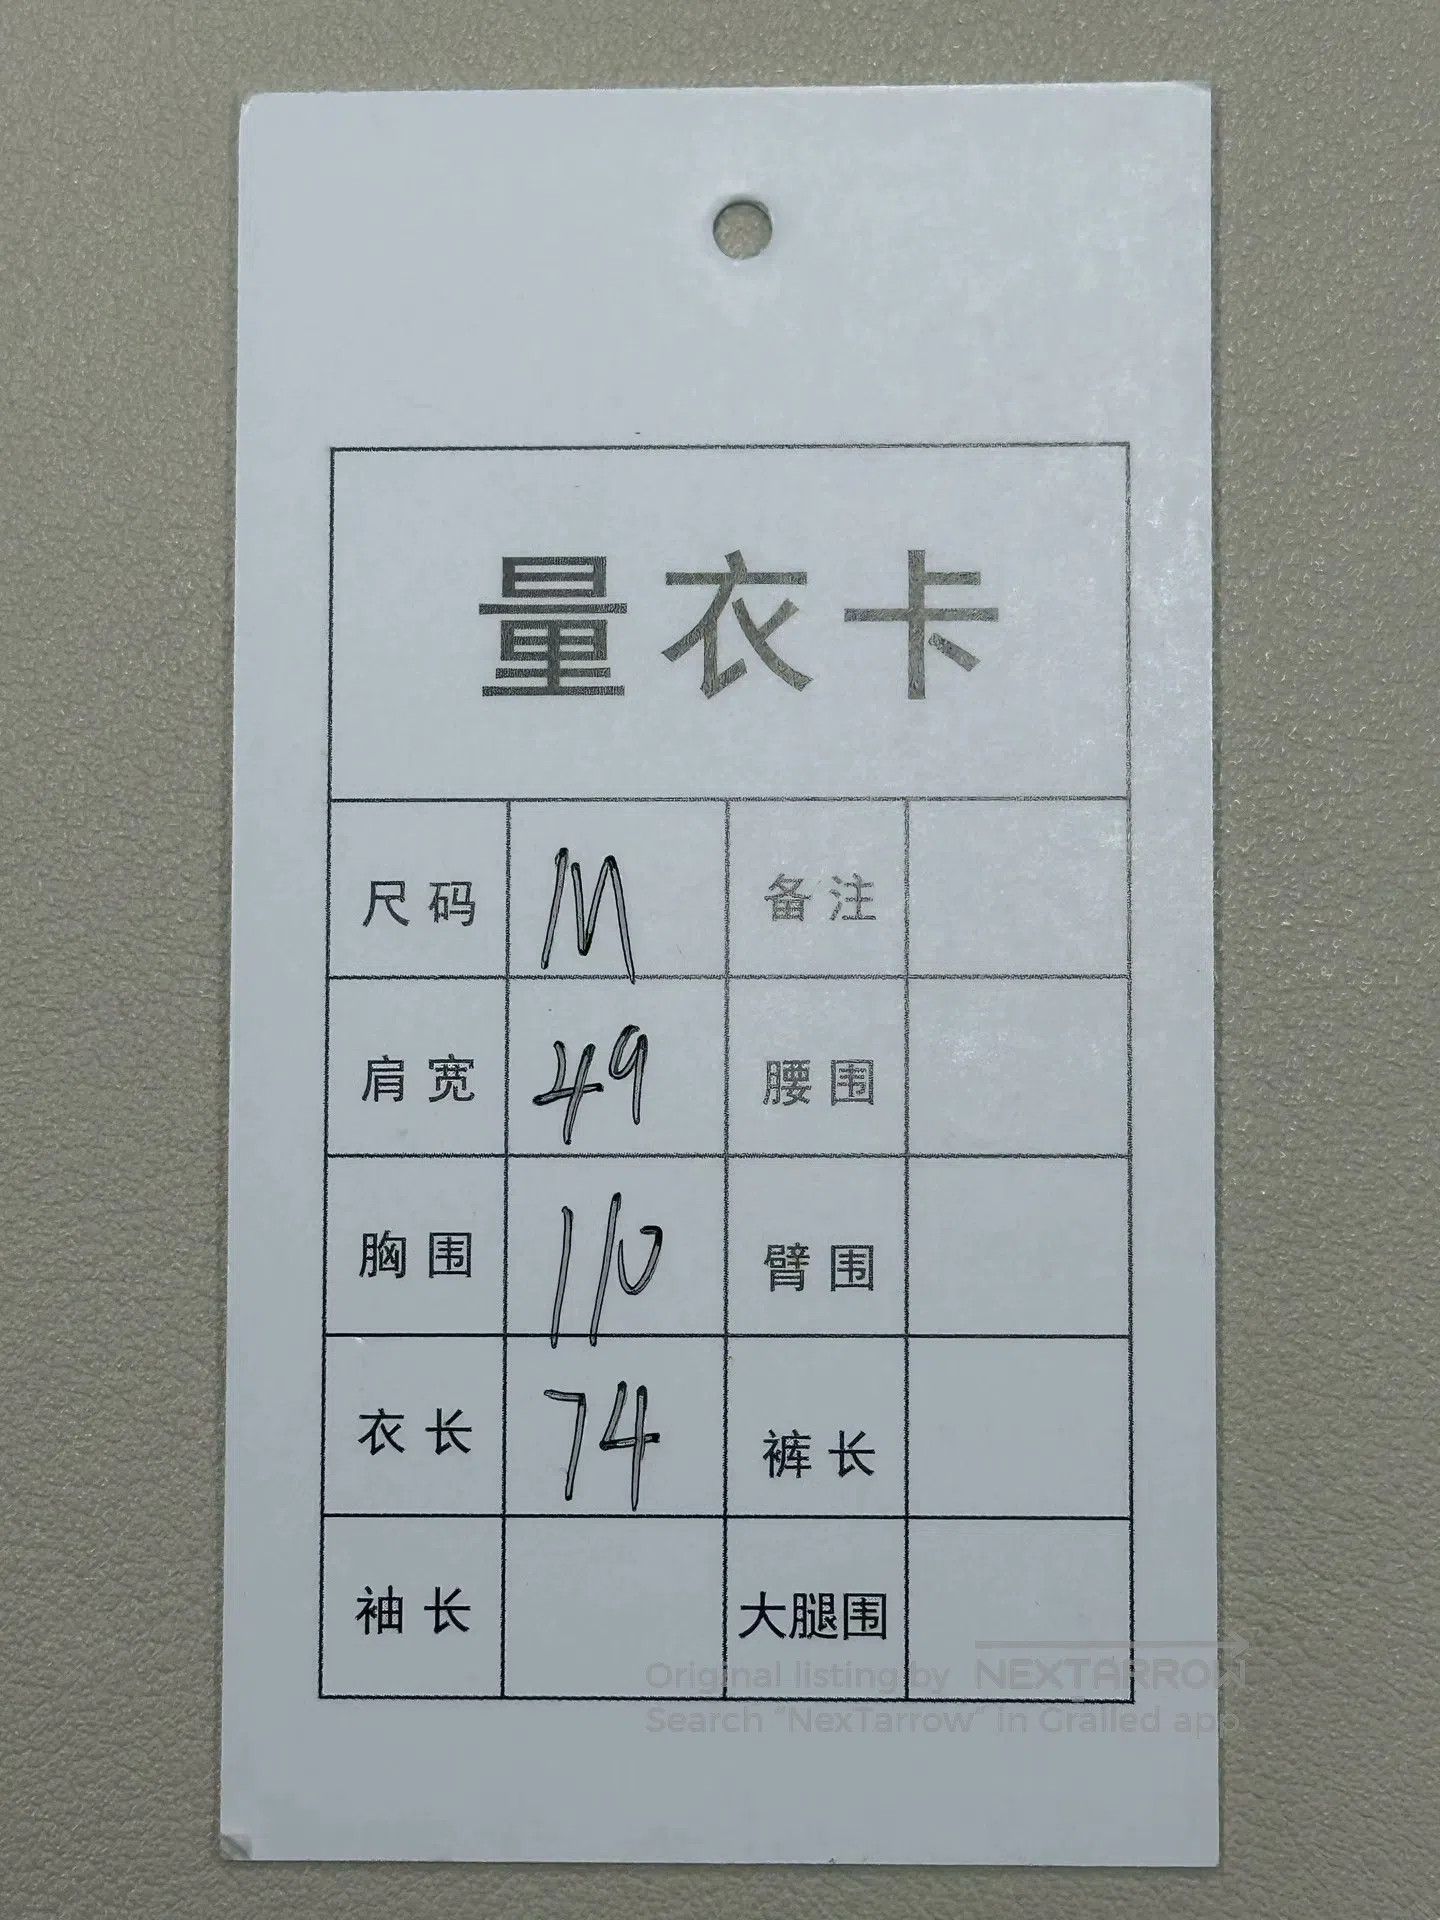 量衣卡
尺码 M 备注
肩宽 49 腰围
胸围 110 臂围
衣长 74 裤长
袖长 大腿围
Original listing by NEXTARROW
Search "NexTarrow" in Grailed app